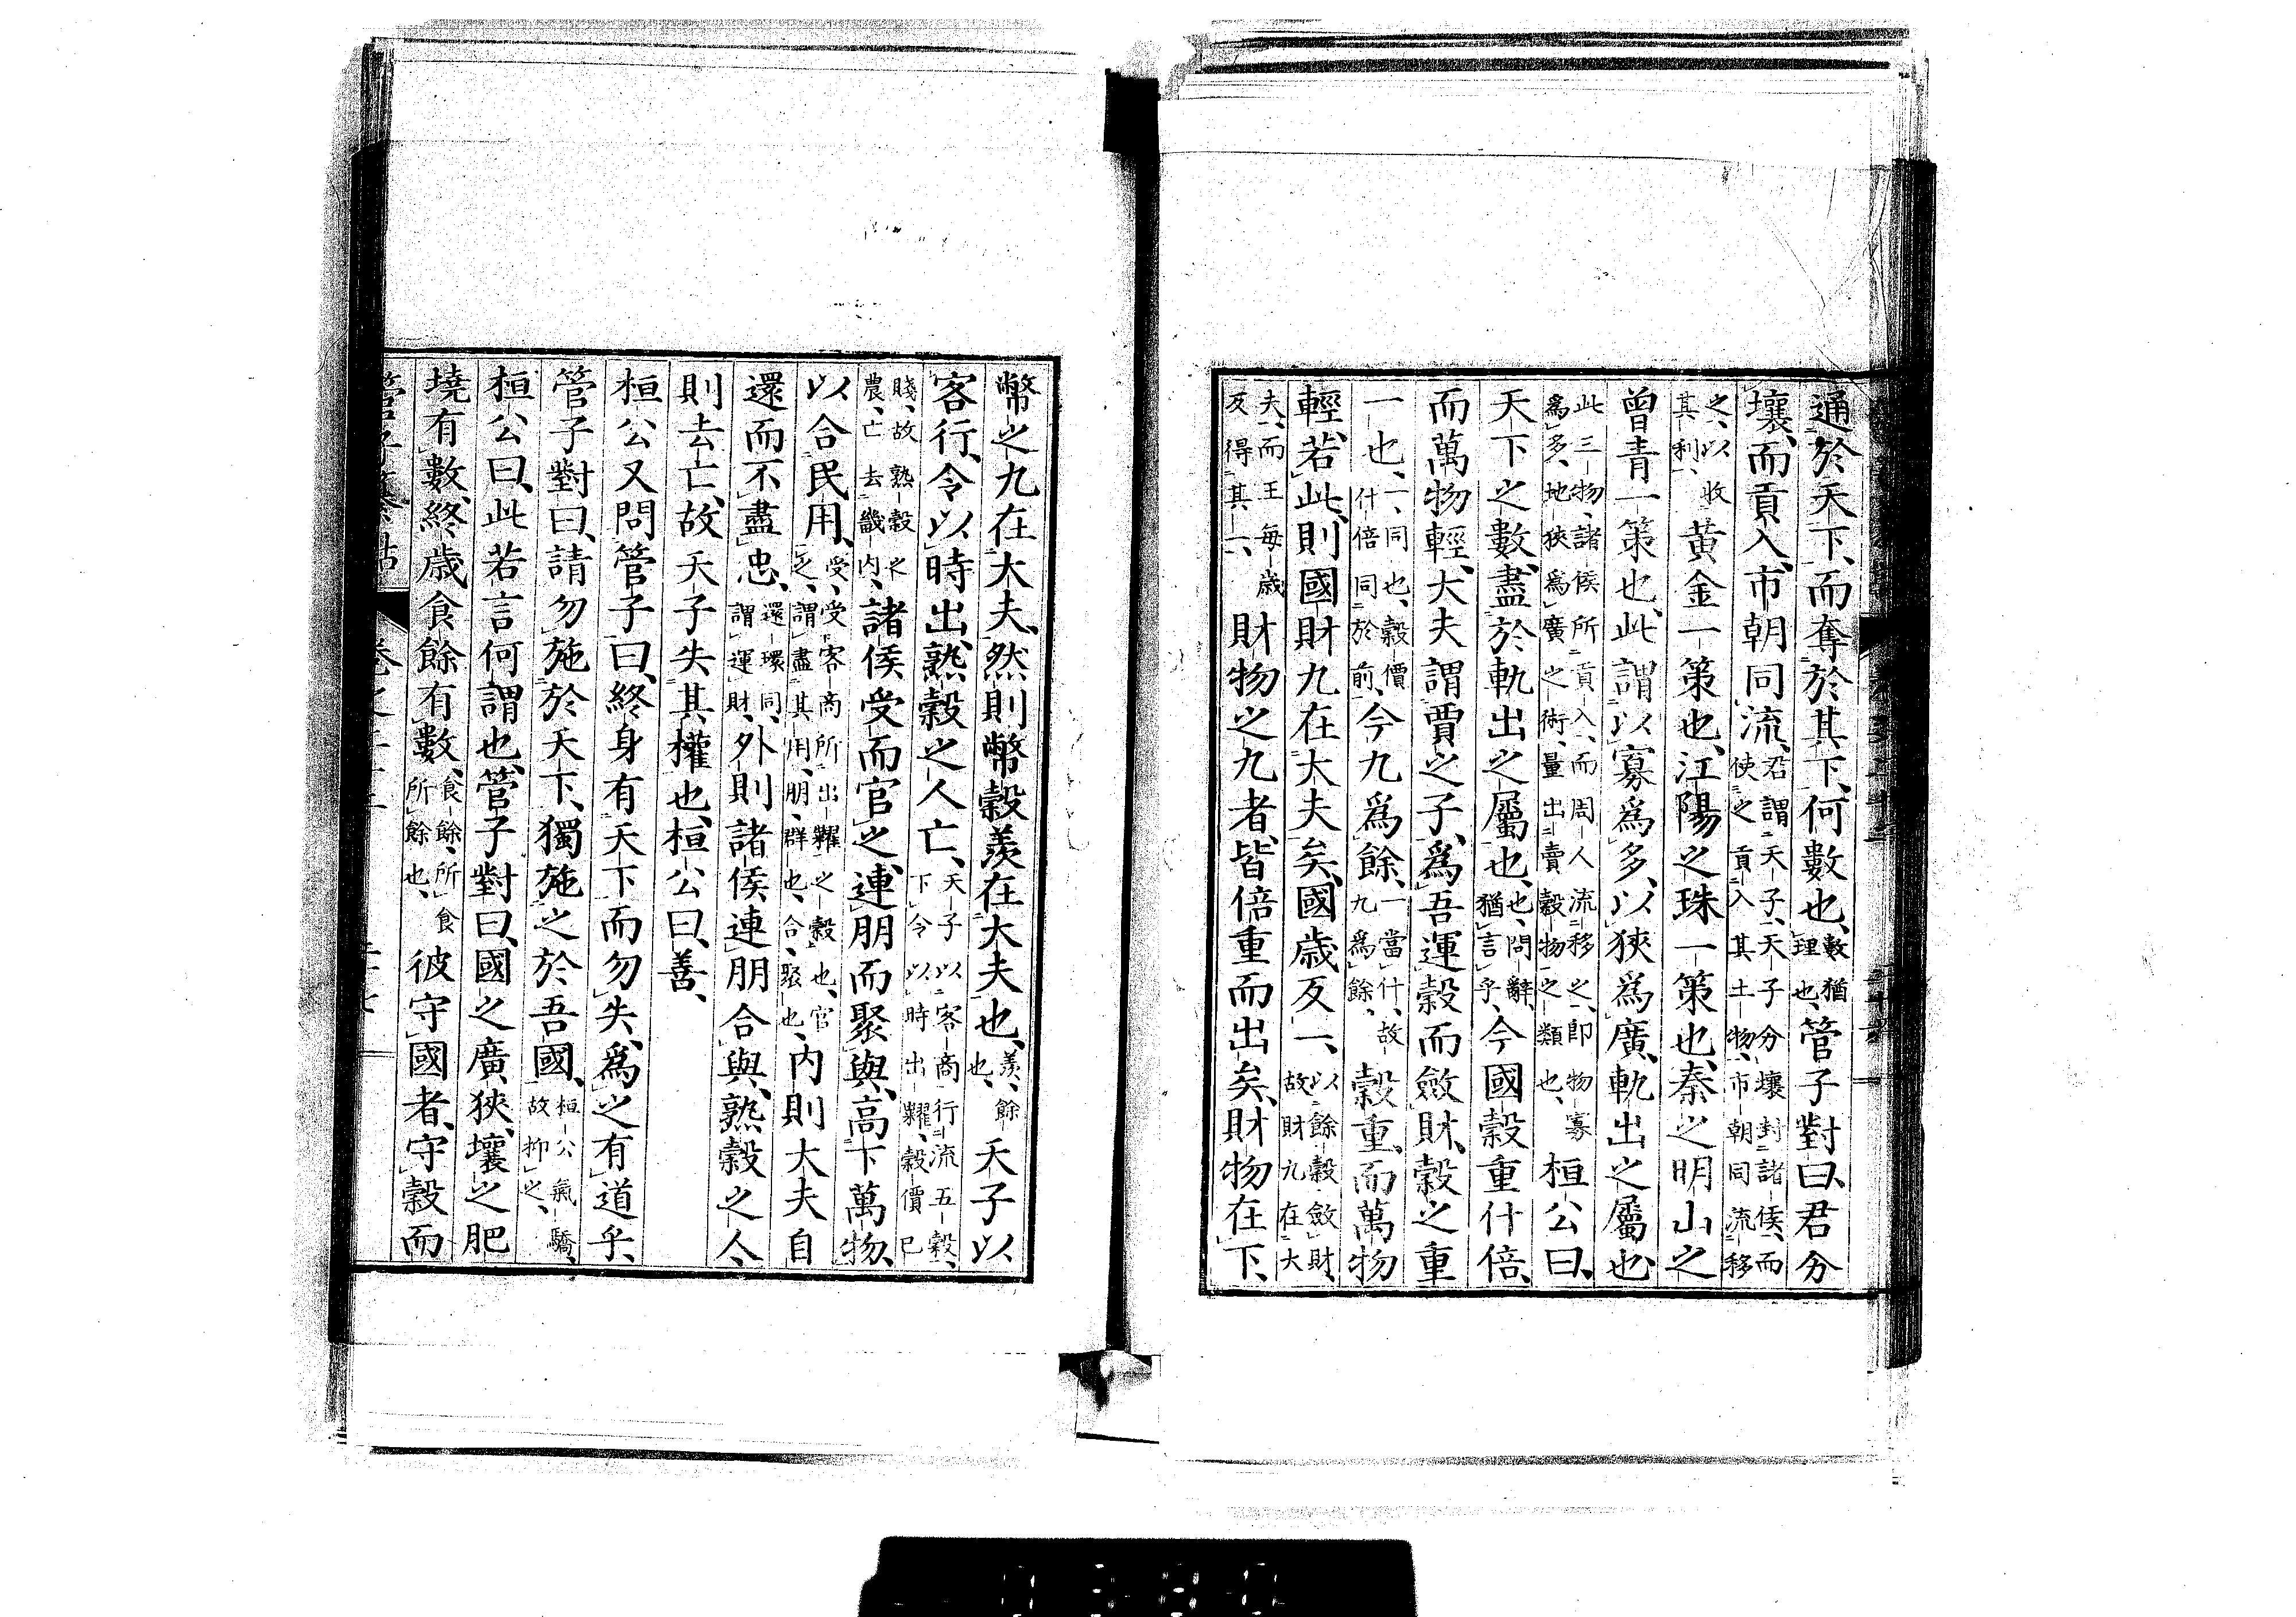 通於天下、而奪於其下、何數也、數猶理也、管子對曰、君分
壤、而貢入、市朝同流、君謂天子、天子分壤封諸侯、而使之貢入其土物、市朝同流移
之、以收其利、黃金一策也、江陽之珠一策也、秦之明山之
曾青一策也、此謂以寡爲多、以狹爲廣、軌出之屬也、
此三物、諸侯所貢入、而周人流移之、即物寡爲多、地狹爲廣之術、量出賣穀物之類也、桓公曰、
天下之數、盡於軌出之屬也、也、問辭、猶言乎、今國穀重什倍、
而萬物輕、大夫謂賈之子、爲吾運穀而斂財、穀之重
一也、一、同也、穀價什倍同於前、今九爲餘、一當什、故九爲餘、穀重、而萬物
輕、若此、則國財九在大夫矣、國歲反一、以餘穀斂財、故財九在大
夫、而王每歲反得其一、財物之九者、皆倍重而出矣、財物在下、
幣之九在大夫、然則幣穀羨在大夫也、羨、餘也、天子以
客行、令以時出、熟穀之人亡、天子以客商行流五穀、下令以時出糶、穀價已
賤、故熟穀之農、亡去畿內、諸侯受而官之、連朋而聚與、高下萬物、
以合民用、受、受客商所出糶之穀也、官之、謂盡其用、朋、群也、合、聚也、內則大夫自
還而不盡忠、還環同、謂運財、外則諸侯連朋合與、熟穀之人、
則去亡、故天子失其權也、桓公曰、善、
桓公又問管子曰、終身有天下而勿失、爲之有道乎、
管子對曰、請勿施於天下、獨施之於吾國、桓公氣驕、故抑之、
桓公曰、此若言何謂也、管子對曰、國之廣狹、壤之肥
墝有數、終歲食餘有數、食餘、所食所餘也、彼守國者、守穀而